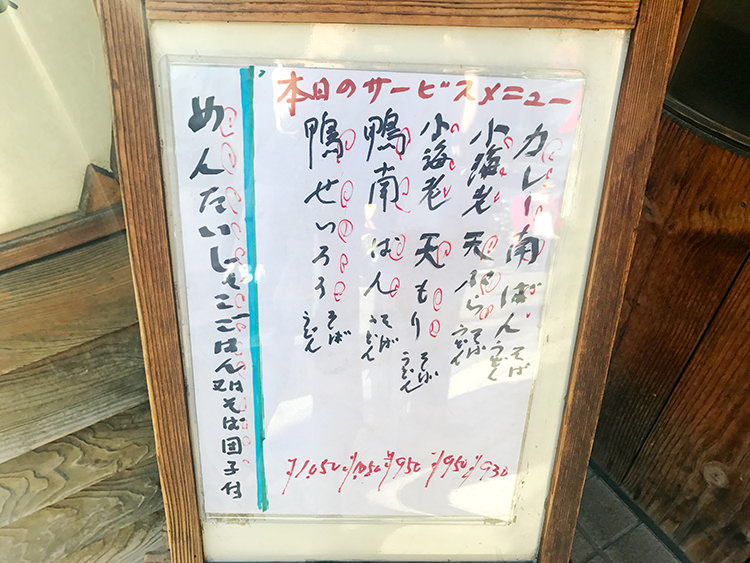 本日のサービスメニュー
カレー南ばん そば うどん ¥930
小海老天ぷら そば うどん ¥950
小海老天もり そば うどん ¥950
鴨南ばん そば うどん ¥1,050
鴨せいろう そば うどん ¥1,050
めんたいしそごはん又はそば団子付